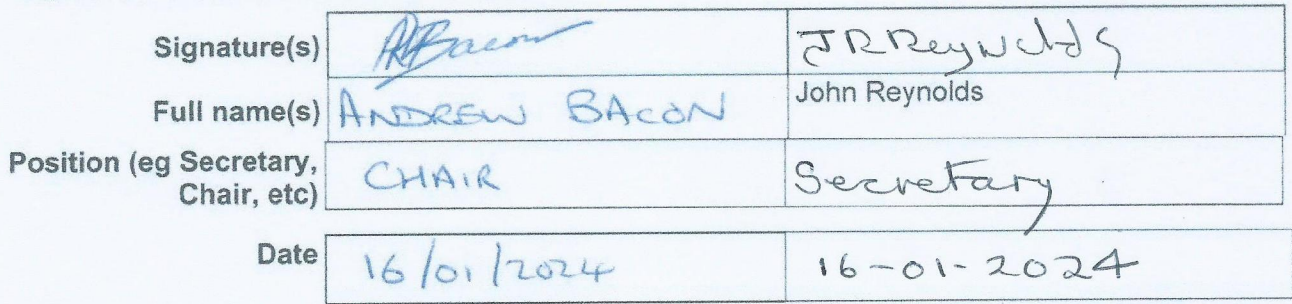 Signature(s) ARBacon JRReynolds
Full name(s) ANDREW BACON John Reynolds
Position (eg Secretary, CHAIR Secretary
Chair, etc)
Date 16/01/2024 16-01-2024